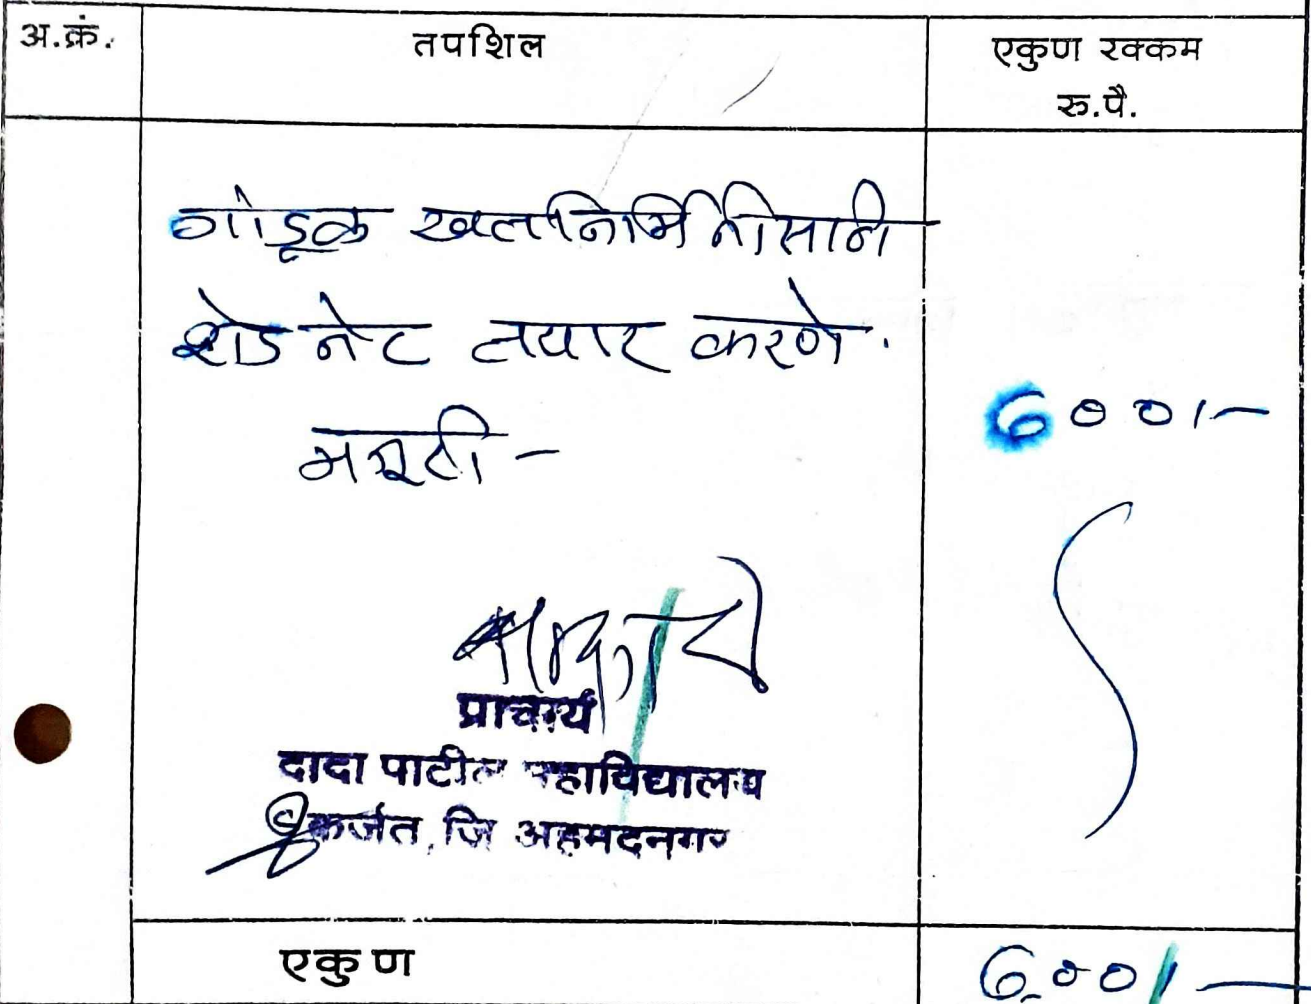 अ.क्रं. तपशिल एकुण रक्कम
रु.पै.
गांडूळ खतनिर्मितीसाठी
शेडनेट तयार करणे.
मजूरी -
600/-
प्राचार्य
दादा पाटील महाविद्यालय
कर्जत, जि अहमदनगर
एकुण 600/-